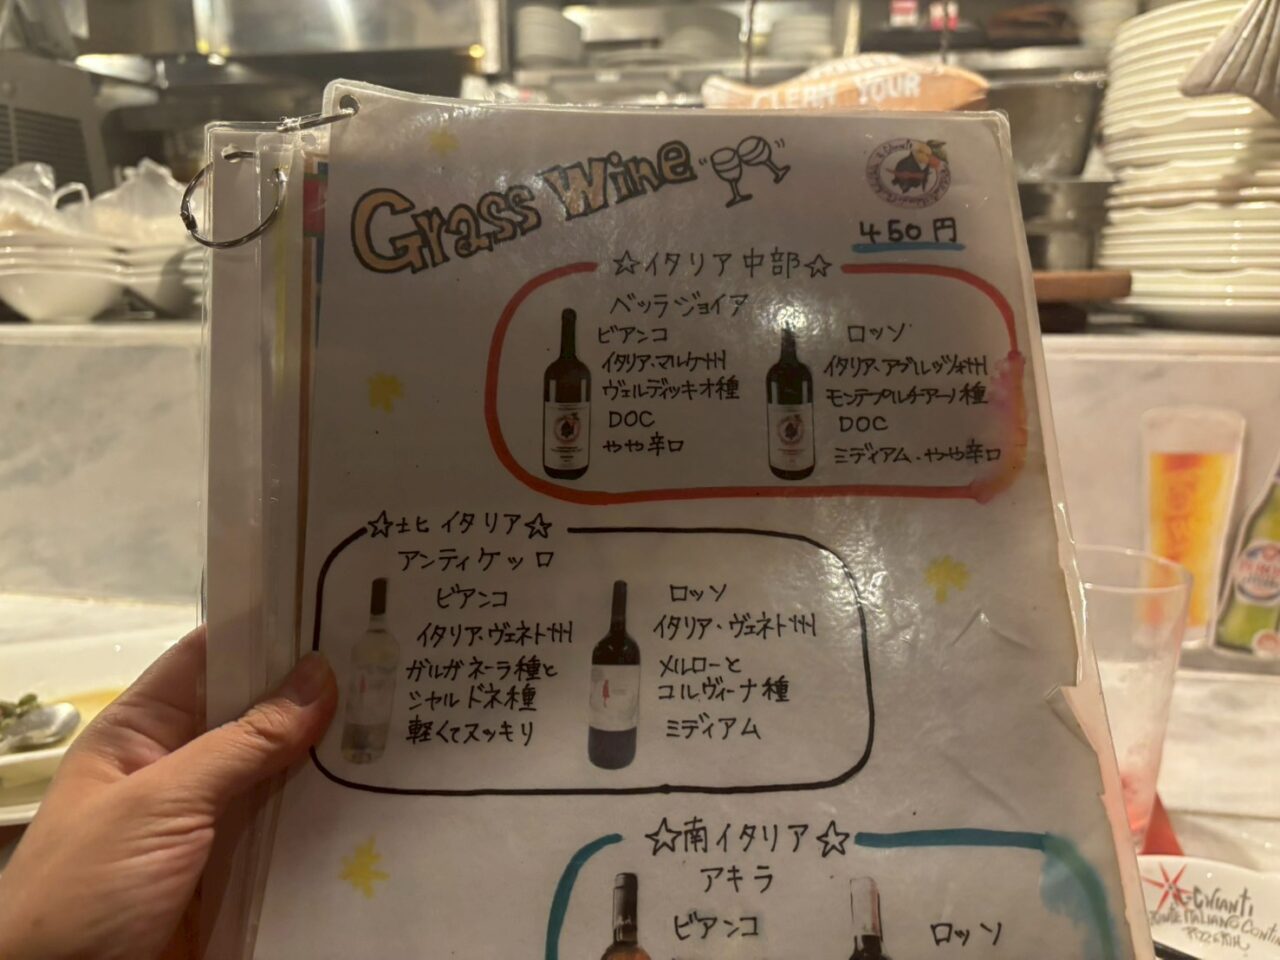 CLEAN YOUR
Grass Wine
450円
☆イタリア中部☆
ベッラジョイア
ビアンコ
イタリア・マルケ州
ヴェルディッキオ種
DOC
やや辛口
ロッソ
イタリア・アブルッツォ州
モンテプルチアーノ種
DOC
ミディアム・やや辛口
☆北イタリア☆
アンティケッロ
ビアンコ
イタリア・ヴェネト州
ガルガネーラ種と
シャルドネ種
軽くてスッキリ
ロッソ
イタリア・ヴェネト州
メルローと
コルヴィーナ種
ミディアム
☆南イタリア☆
アキラ
ビアンコ
ロッソ
CHIANTI